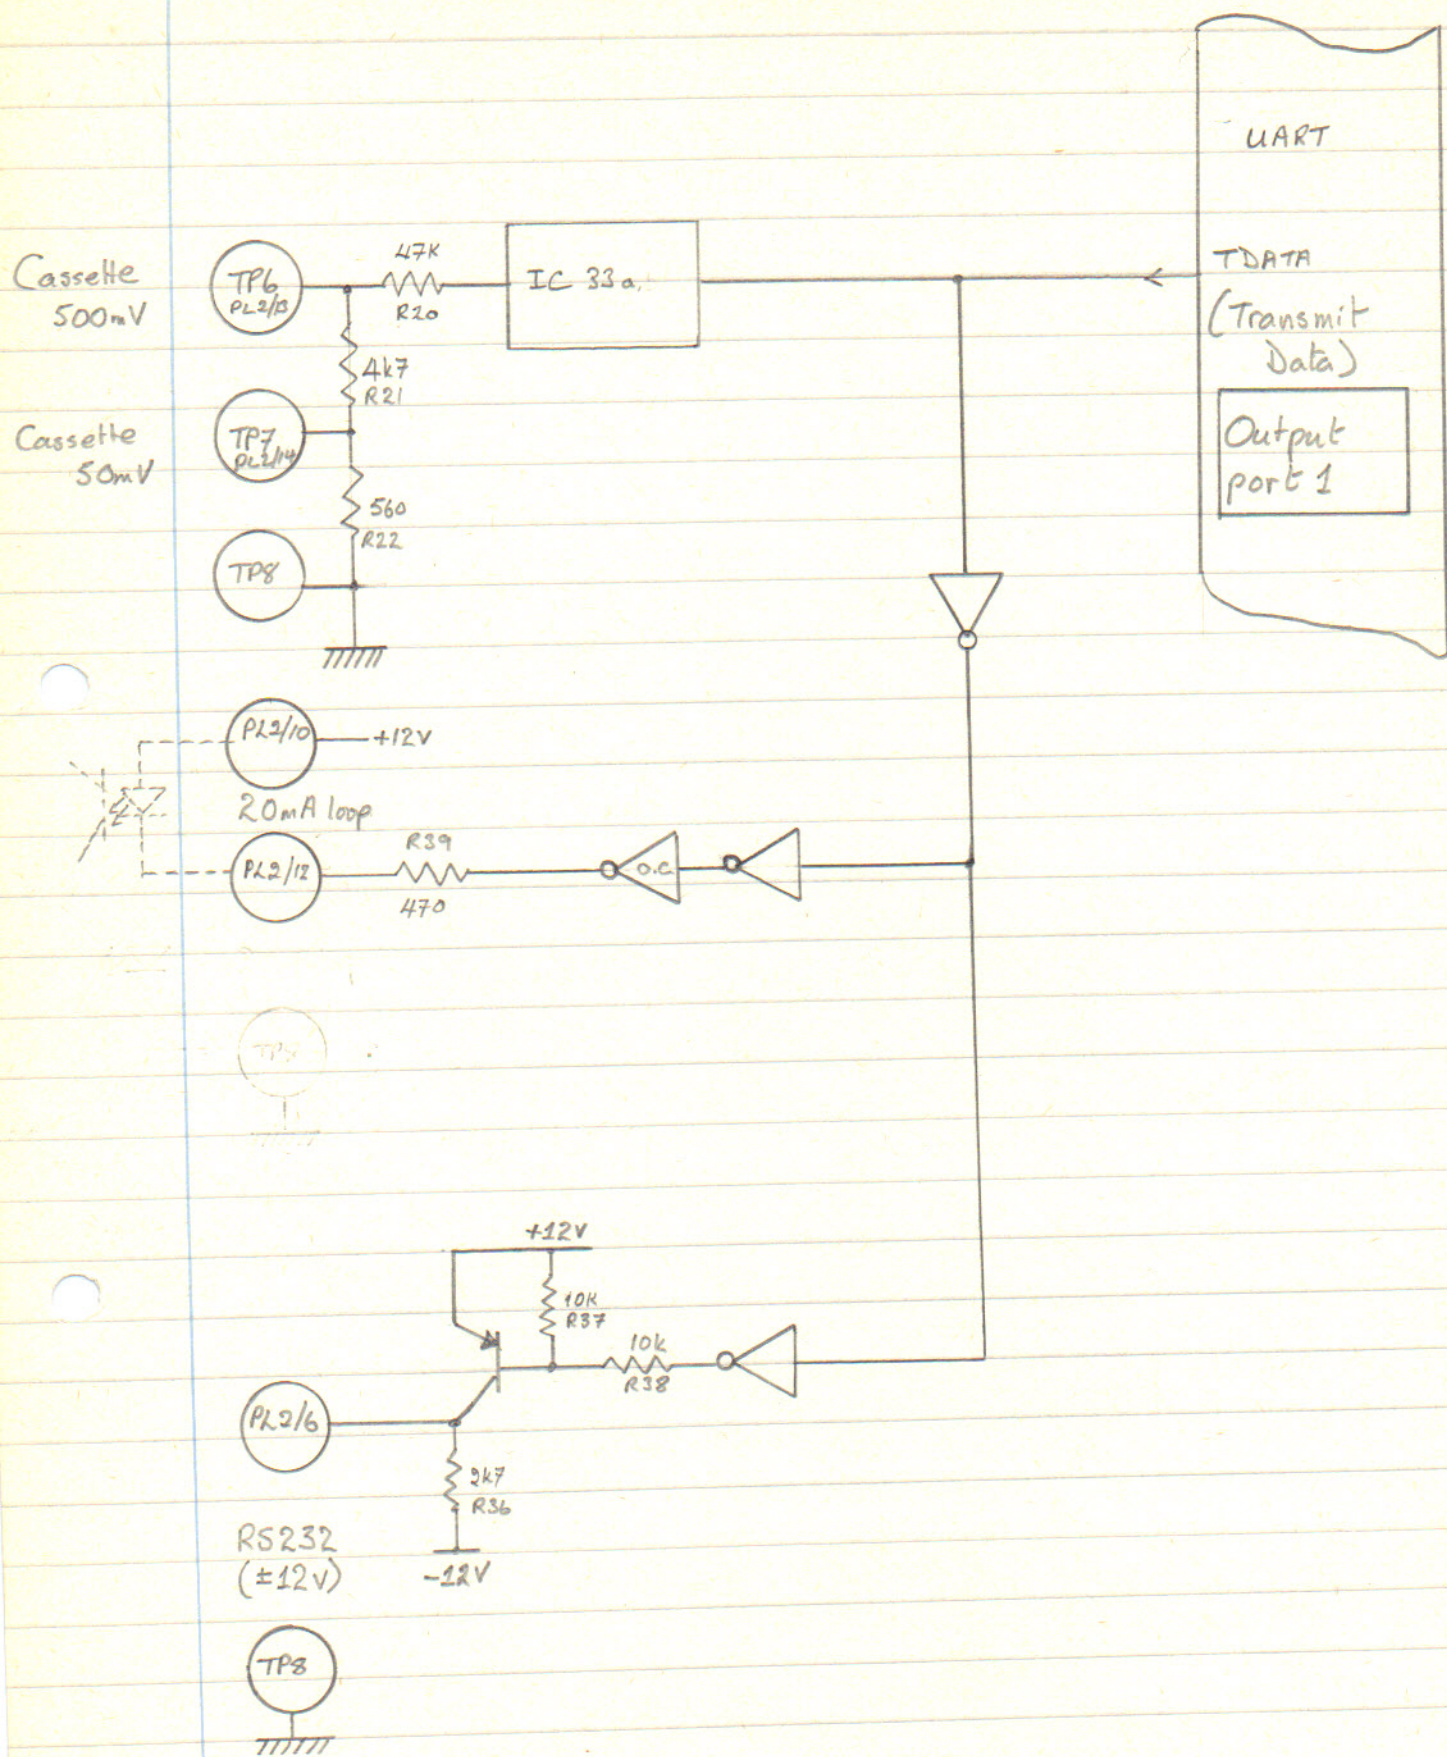 UART
TDATA
(Transmit
Data)
Output
port 1
Cassette
500mV
TP6
PL2/13
47K
R20
IC 33a
4k7
R21
Cassette
50mV
TP7
PL2/14
560
R22
TP8
PL2/10
+12V
20mA loop
PL2/12
R39
470
O.C.
+12V
10K
R37
10k
R38
PL2/6
2k7
R36
RS232
(±12V)
-12V
TP8